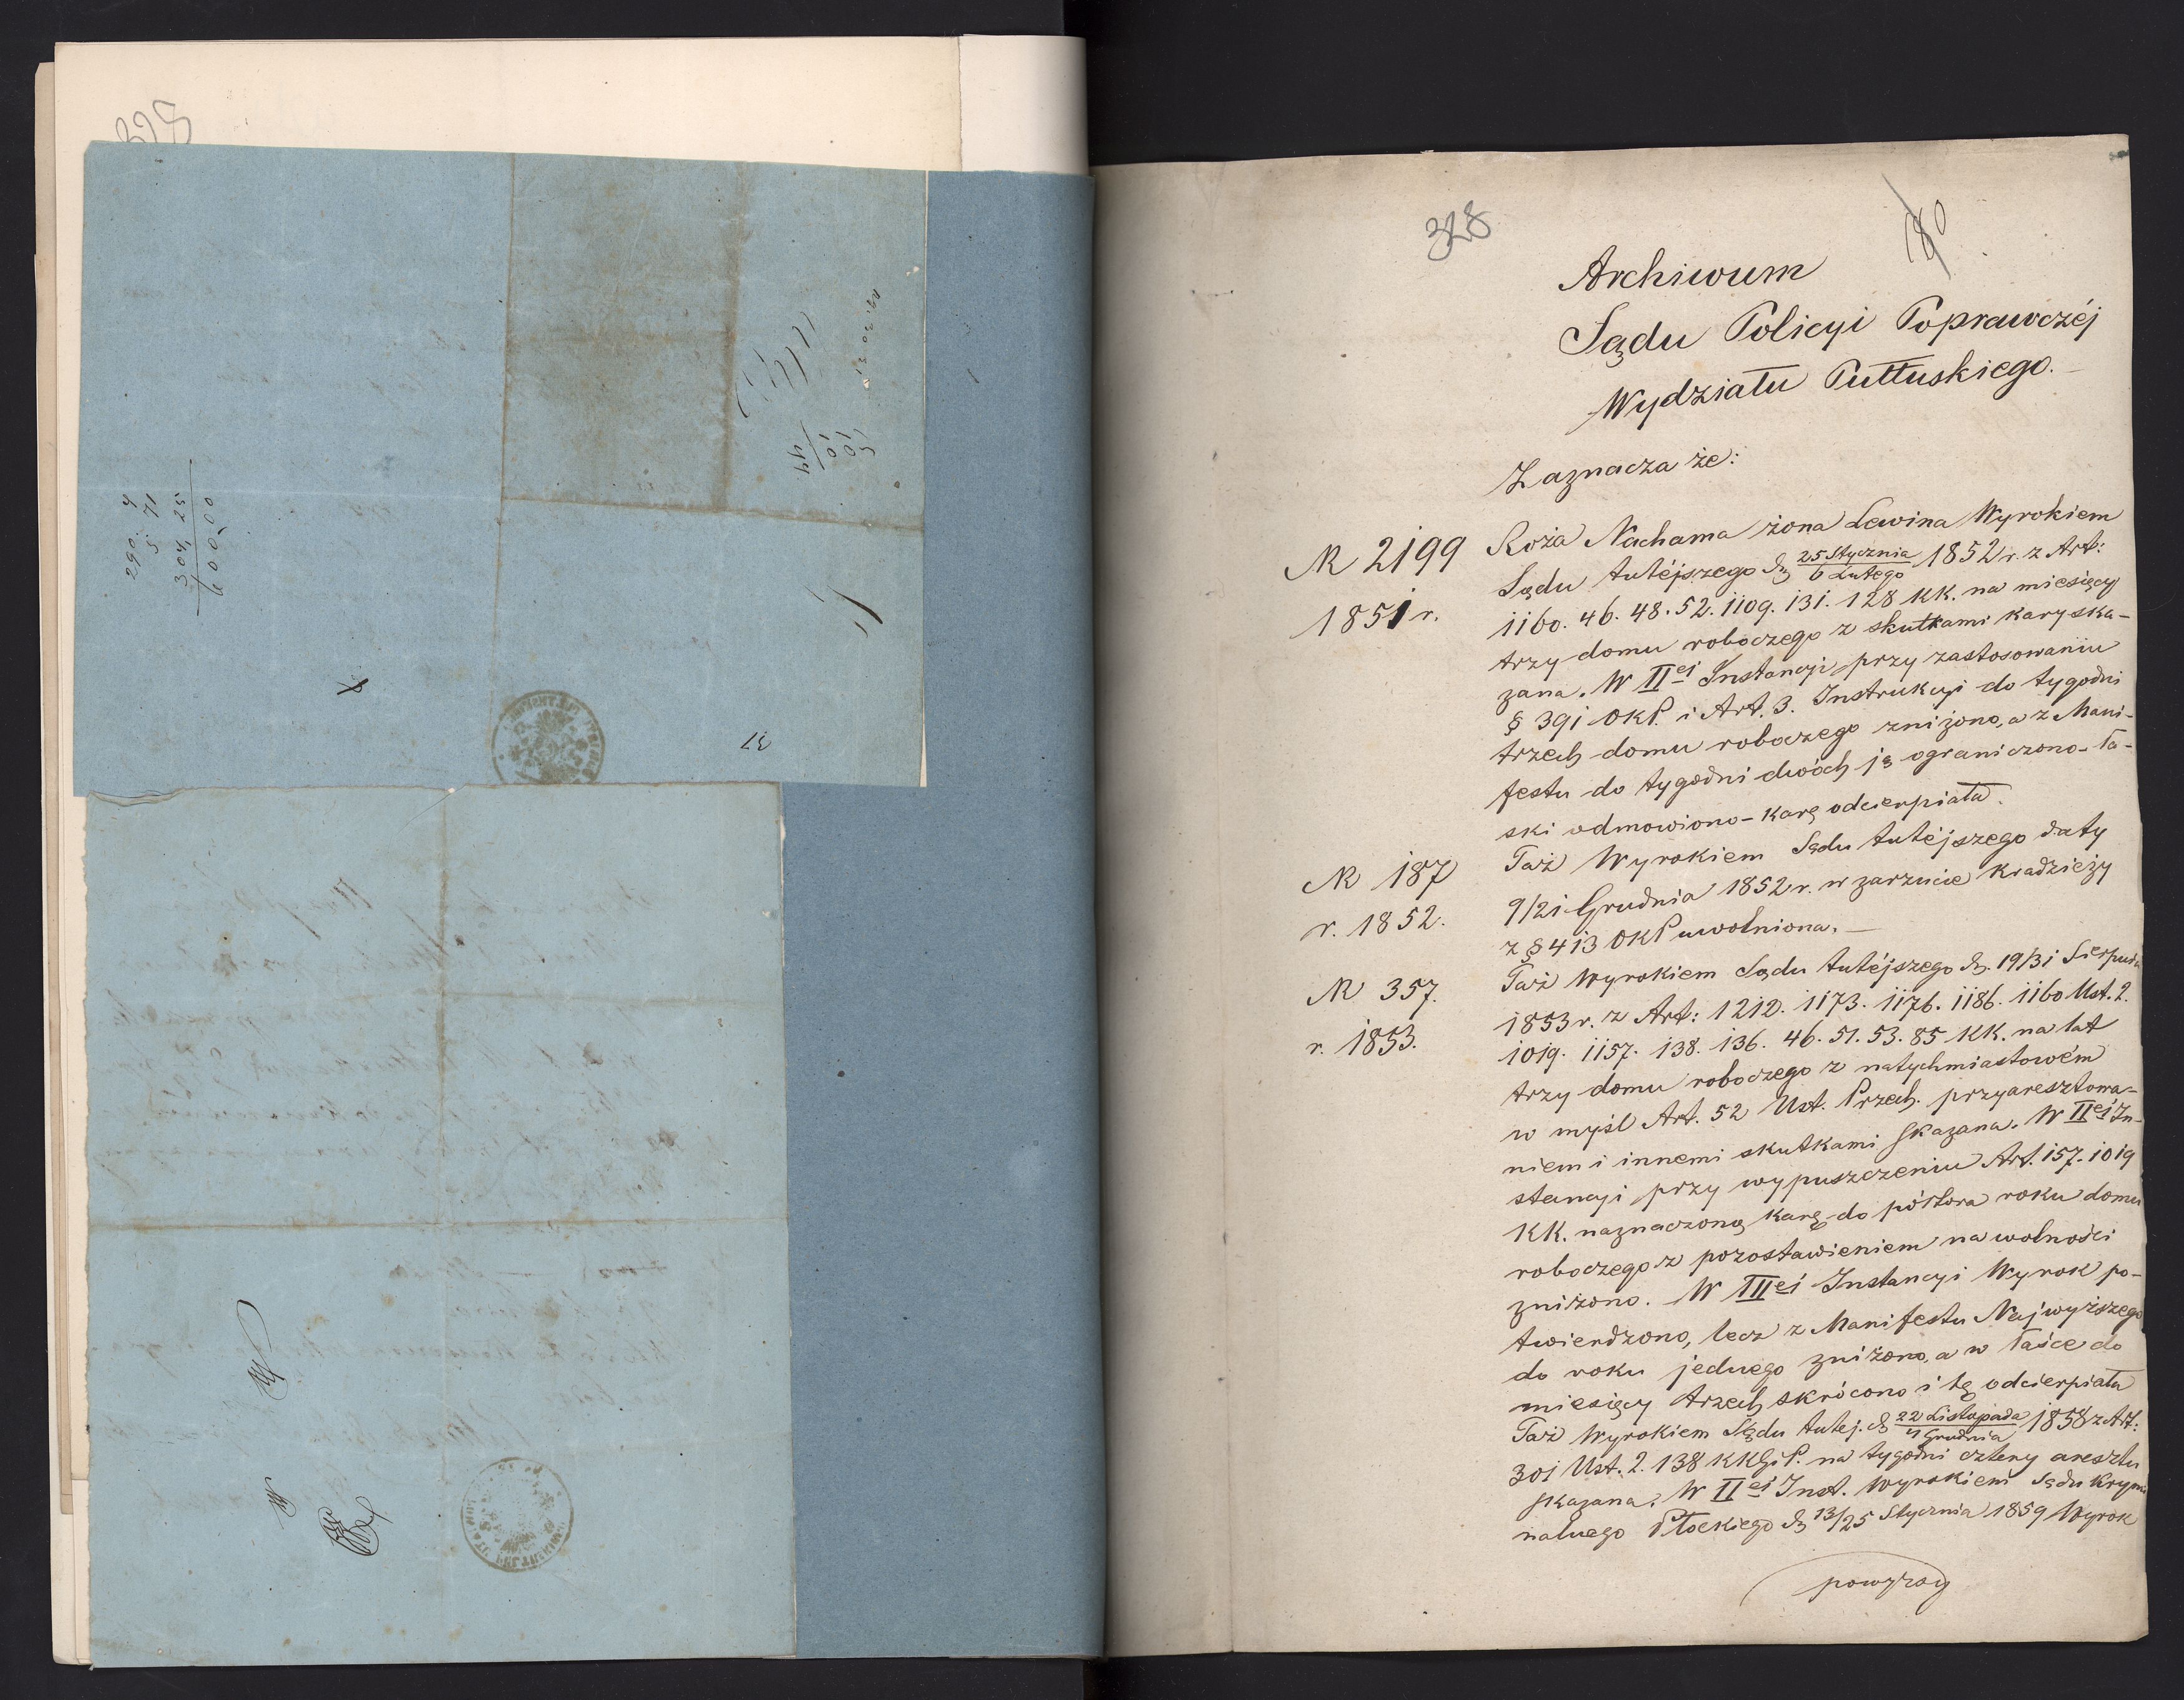 328
Archiwum
Sądu Policyi Poprawczéj
Wydziału Pułtuskiego.
Zaznacza że:
N 2199
1851 r.
Roża Nachama żona Lewina Wyrokiem
Sądu tutéjszego d. 25 Stycznia / 6 Lutego 1852 r. z Art:
1160. 46. 48. 52. 1109. 131. 128 KK. na miesięcy
trzy domu roboczego z skutkami kary ska-
zana. W IIej Instancji przy zastosowaniu
§ 391 OKP. i Art. 3. Instrukcyi do tygodni
trzech domu roboczego zniżono, a z Mani-
festu do tygodni dwóch ją ograniczono - ła-
ski odmowiono - karę odcierpiała.
N 187
r. 1852.
Taż Wyrokiem Sądu tutéjszego daty
9/21 Grudnia 1852 r. w zarzucie kradzieży
z § 413 OKP uwolniona. -
N 357.
r. 1853.
Taż Wyrokiem Sądu tutéjszego d. 19/31 Sierpnia
1853 r. z Art: 1212. 1173. 1176. 1186. 1160 Ust. 2.
1019. 1157. 138. 136. 46. 51. 53. 85 KK. na lat
trzy domu roboczego z natychmiastowém
w myśl Art. 52 Ust. Przech. przyaresztowa-
niem i innemi skutkami skazana. W IIej In-
stancyi przy wypuszczeniu Art. 157. 1019
KK. naznaczoną karę do półtora roku domu
roboczego z pozostawieniem na wolności
zniżono. W IIIej Instancyi Wyrok po-
twierdzono, lecz z Manifestu Najwyższego
do roku jednego zniżono, a w łasce do
miesięcy trzech skrócono i tę odcierpiała
Taż Wyrokiem Sądu tutej. d. 22 Listopada / 4 Grudnia 1858 z Art:
301 Ust. 2. 138 KKGiP. na tygodni cztery aresztu
skazana. W IIej Inst. Wyrokiem Sądu Krymi
nalnego Płockiego d. 13/25 Stycznia 1859 Wyrok
powyższy
290. 9
5. 71
304, 25
600,00
5
10
10
44
17